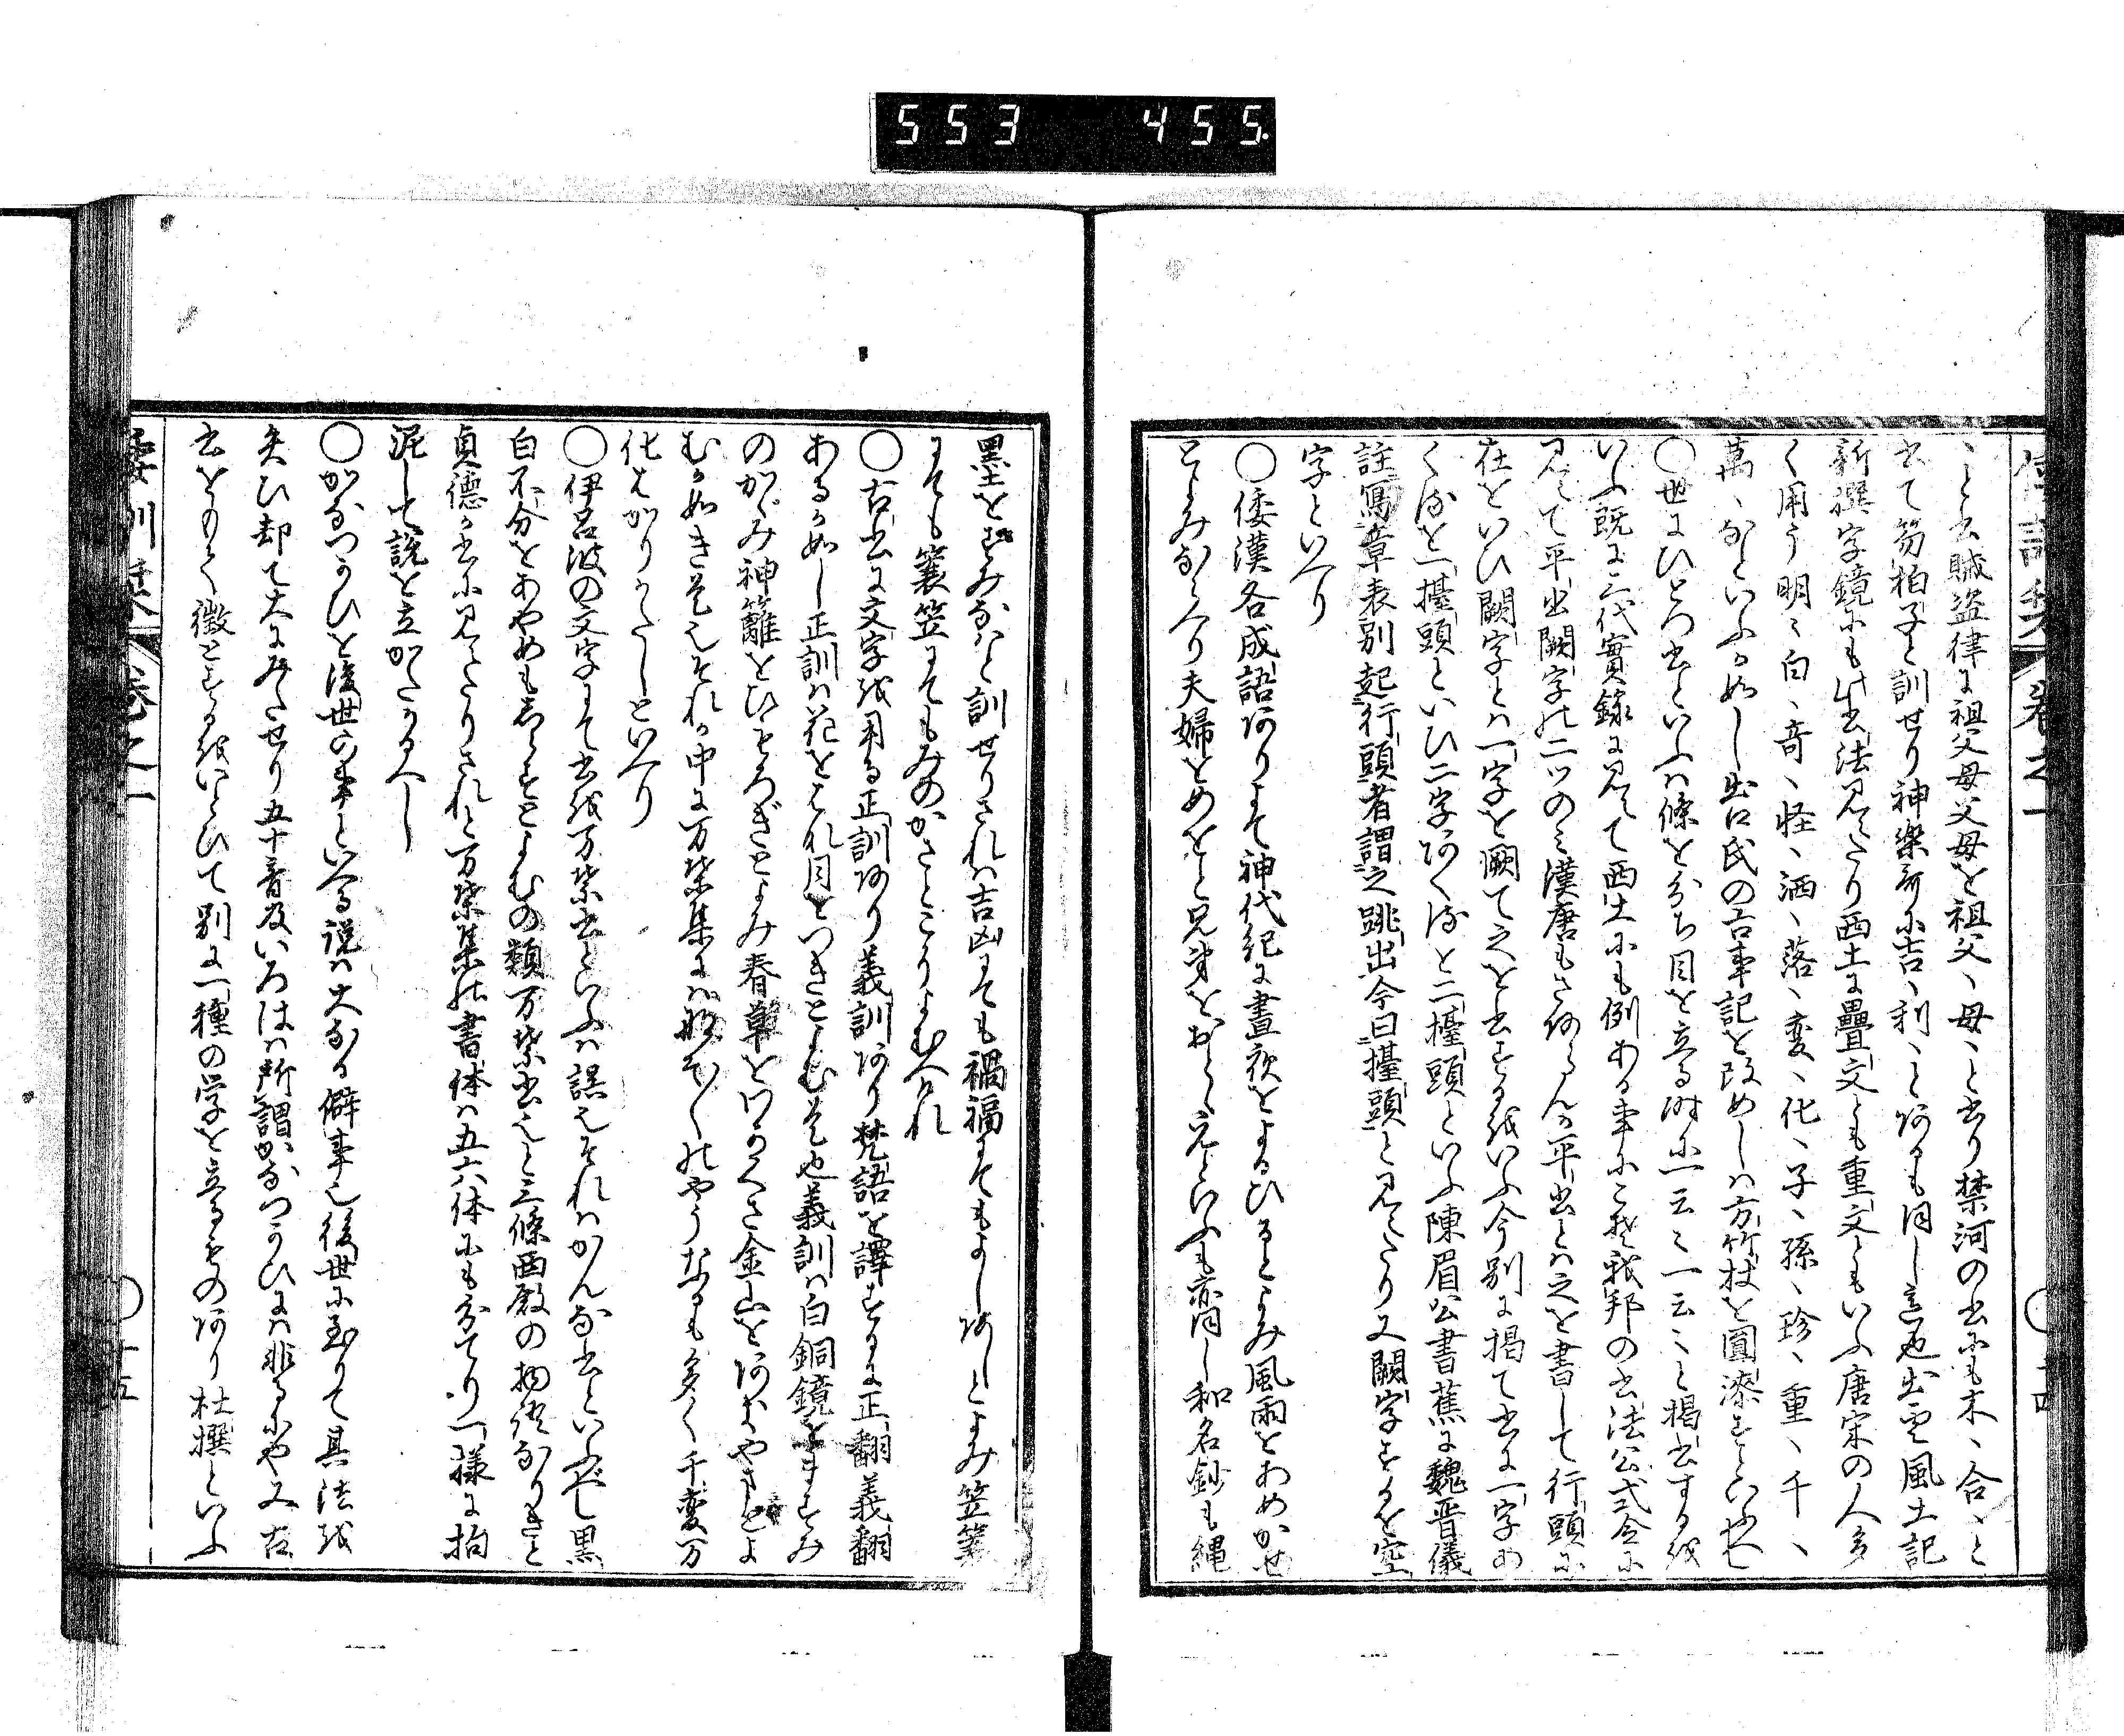 553 455.
倭訓栞 巻之一 ○十四
ゝと書賊盗律に祖父母父母を祖父ゝ母ゝと書り禁河の書にも木ゝ合ゝと
書て笏拍子と訓せり神楽哥に吉ゝ利ゝとあるも同し意也出雲風土記
新撰字鏡にも此書法見えたり西土に畳文とも重文ともいふ唐宋の人多
く用う明ゝ白ゝ奇ゝ怪ゝ洒ゝ落ゝ変ゝ化ゝ子ゝ孫ゝ珍ゝ重ゝ千ゝ
萬ゝなといふか如し出口氏の古事記を改めしハ方竹杖を圓漆すといふへし
○世にひとつ書といふハ條をわち目を立る時に一云々一云々と掲出するを
いふ既に三代實録に見えて西土にも例ある事にこそ我邦の書法公式令に
見えて平出闕字の二ツのミ漢唐もさあらんか平出とハ之を書して行頭に
在をいひ闕字とハ一字を闕て之を書するをいふ今別に掲て書に一字あ
くるを一擡頭といひ二字あくるを二擡頭といふ陳眉公書蕉に魏晋儀
註寫章表別起行頭者謂之跳出今曰擡頭と見えたり又闕字するを空
字といへり
○倭漢各成語ありよて神代紀に晝夜をよるひるとよみ風雨をあめかせ
とよみならへり夫婦をめをと兄弟をおとゝえといふも亦同し和名鈔も縄
墨をすみなはと訓せりされハ吉凶にても禍福にてもよしあしとよみ笠簑
にても簑笠にてもみのかさとこりよむへけれ
○古書に文字を用る正訓あり義訓あり梵語を譯するに正翻義翻
あるか如し正訓ハ花をはな月をつきとよむそ也義訓ハ白銅鏡をますみ
のかゝみ神籬をひもろぎとよみ春草をわかくさ金山をあきやまとよ
むか如きそ也それか中に万葉集にハ政あくのやうなるも多く千変万
化はかりかたしといへり
○伊呂波の文字にて書を万葉書といふハ誤也それハかんな書といふべし黒
白不分をあやめもしらすとよむの類万葉書也と三條西殿の物語なりきと
貞徳か書に見えたりされと万葉集の書体ハ五六体にも分てり一様に拘
泥して説を立かたかるへし
○かなつかひを後世の事といへる説ハ大なる僻事也後世に至りて具法を
失ひ却て大にみたせり五十音及いろはハ所謂かなつかひにハ非るにや又古
書をひろく徴とするをいとひて別に一種の学を立るものあり杜撰といふ
倭訓栞 巻之一 ○十五